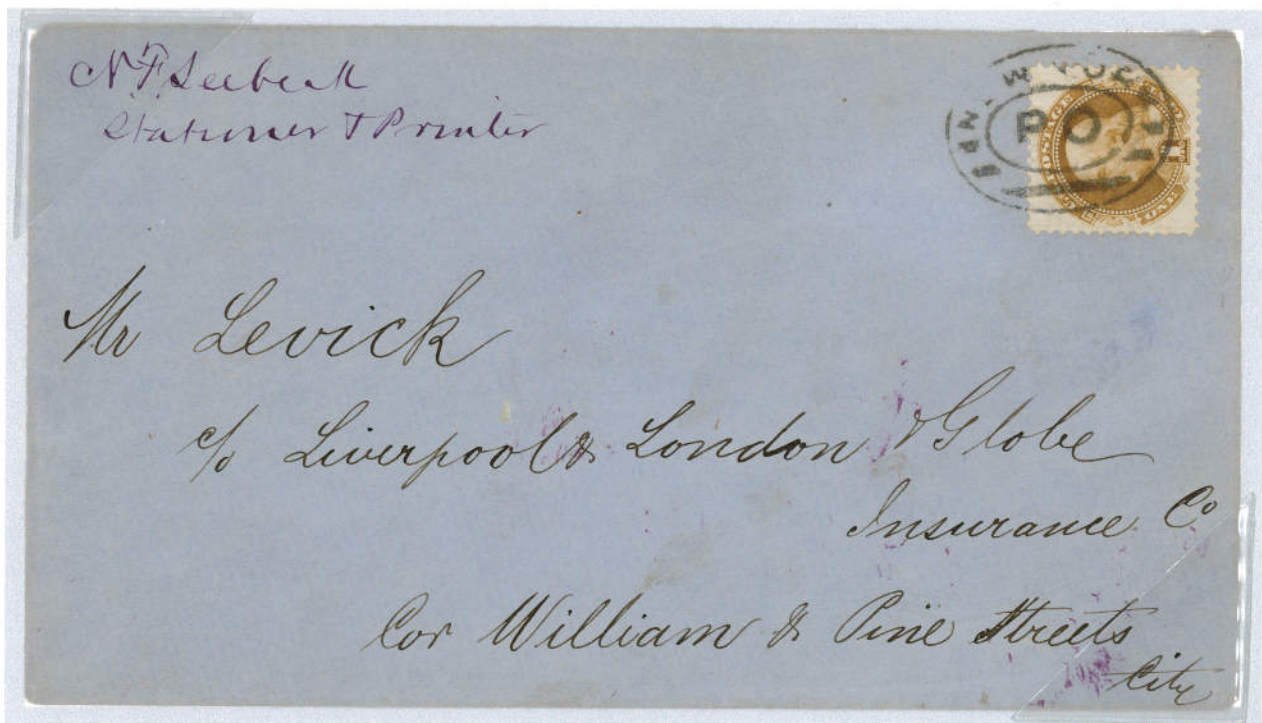 N F Seebeck
Stationer & Printer
NEW YORK
P O
POSTAGE
1
ONE
Mr Levick
c/o Liverpool & London & Globe
Insurance Co
Cor William & Pine Streets
City